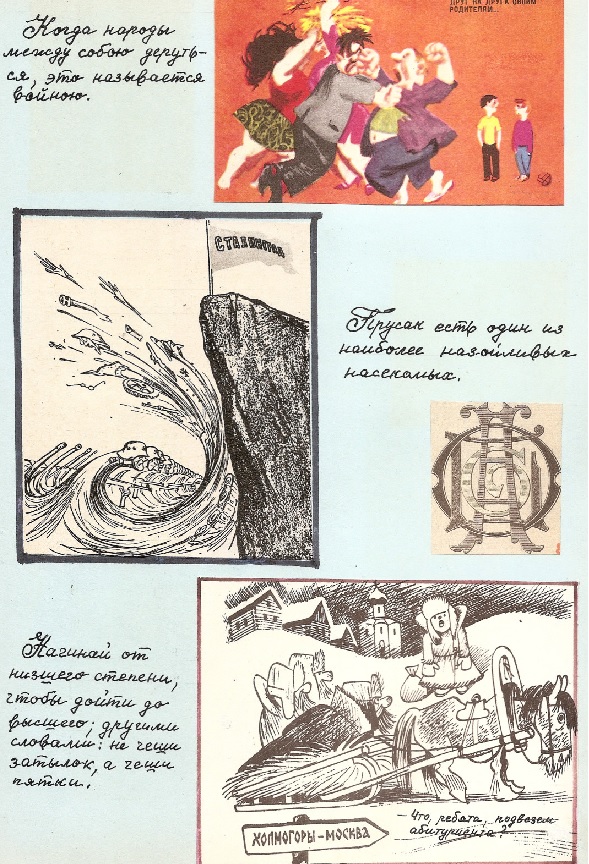 Когда народы
между собою деруть-
ся, это называется
войною.
ДРУГ НА ДРУГА СВОИМ
РОДИТЕЛЯМ...
СТАЛИНГРАД
Прусак есть один из
наиболее назойливых
насекомых.
Начинай от
низшего степени,
чтобы дойти до
высшего; другими
словами: не чеши
затылок, а чеши
пятки.
- Что, ребята, подвезем
абитуриента?
ХОЛМОГОРЫ-МОСКВА